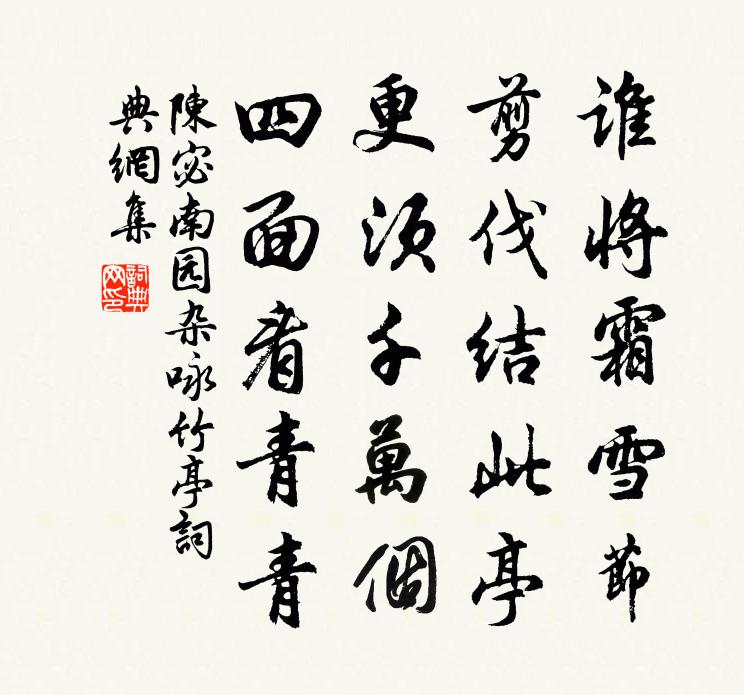 谁将霜雪節
剪伐结此亭
更须千萬個
四面看青青
陳宓南园杂咏竹亭詞
典網集
詞典网印